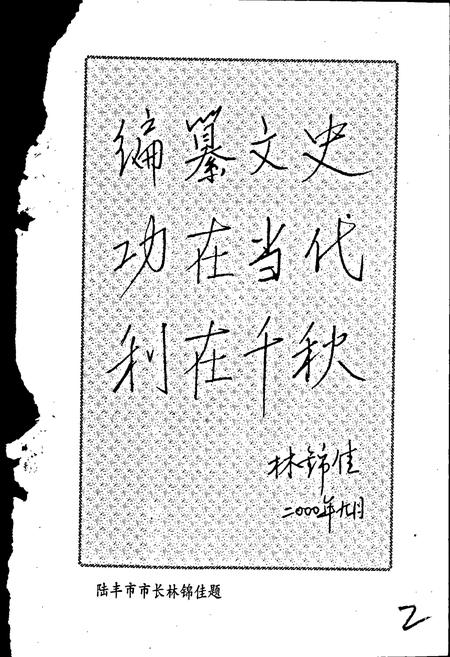 编纂文史
功在当代
利在千秋
林锦佳
二000年九月
陆丰市市长林锦佳题
2